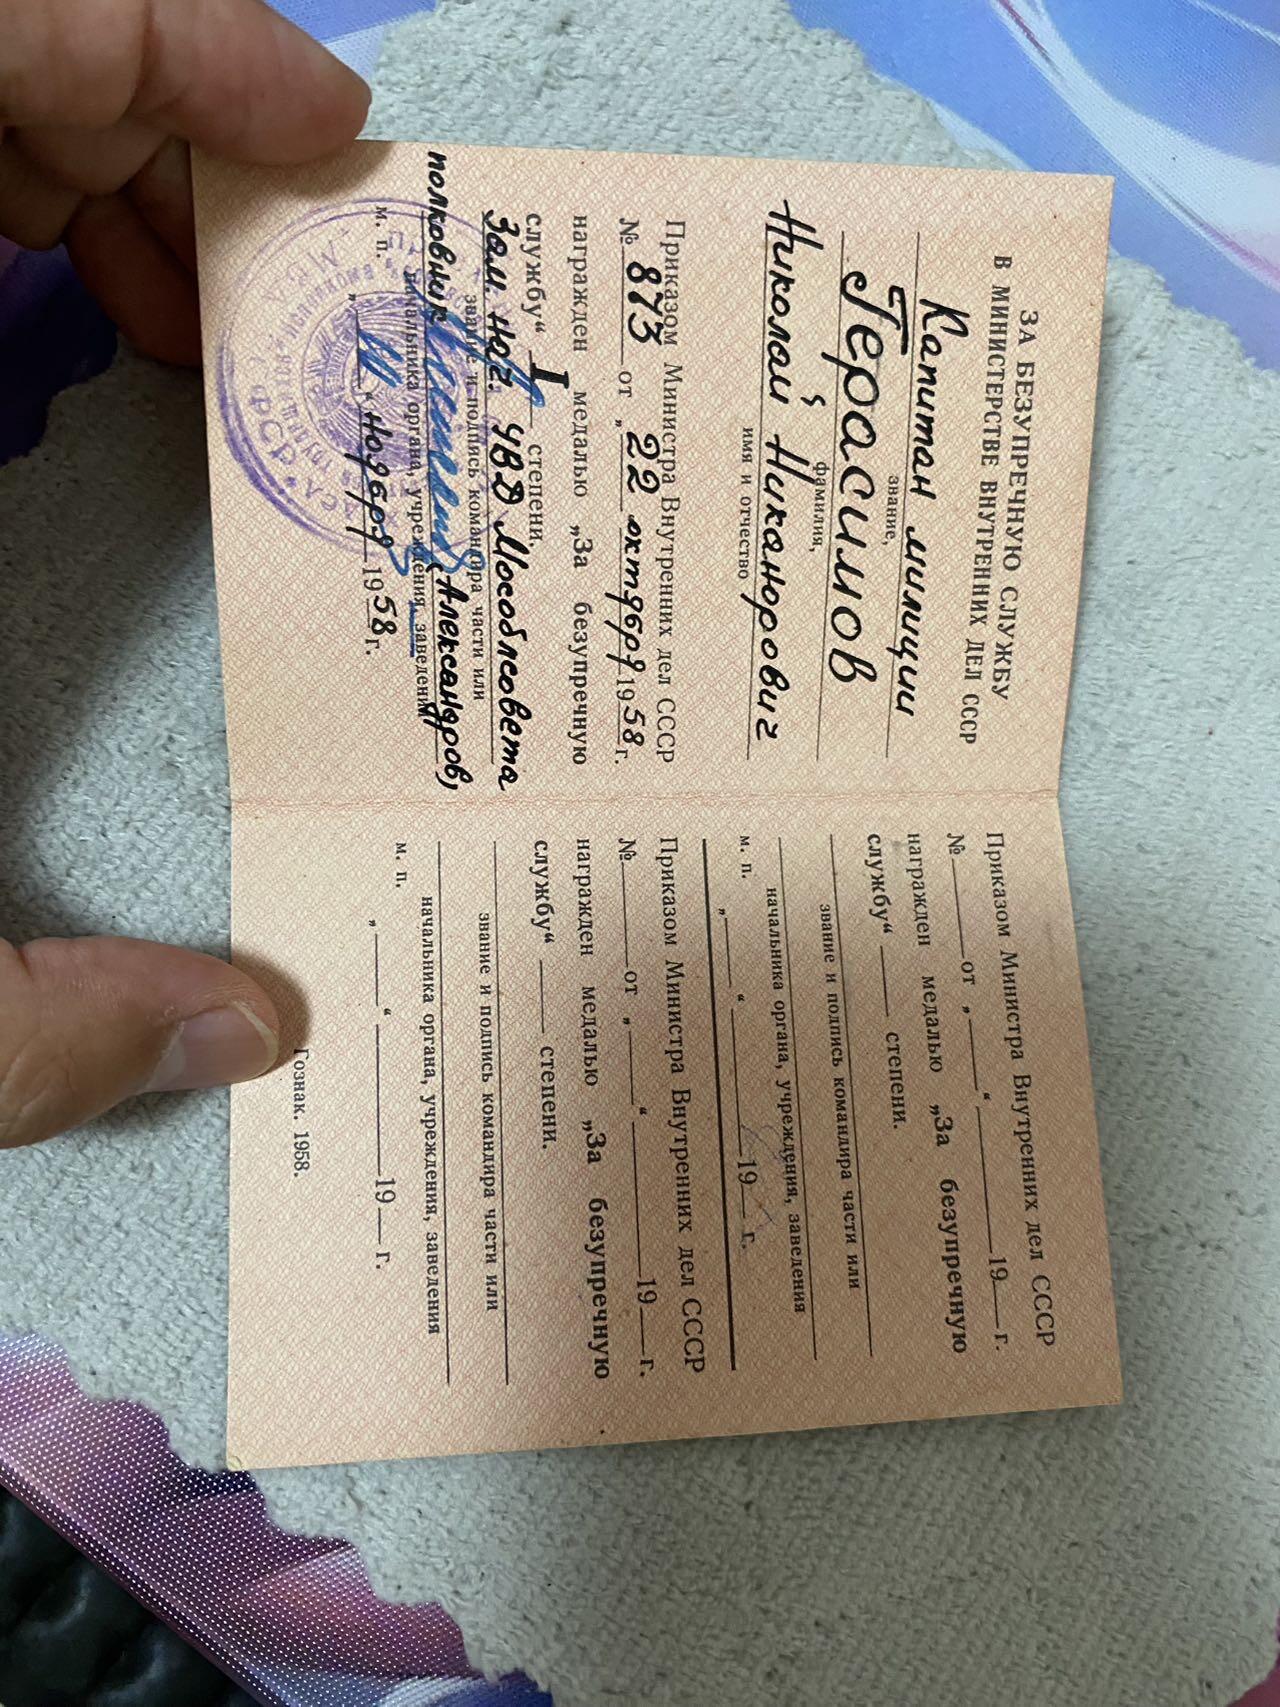 ЗА БЕЗУПРЕЧНУЮ СЛУЖБУ
В МИНИСТЕРСТВЕ ВНУТРЕННИХ ДЕЛ СССР
Капитан милиции
звание,
Герасимов
фамилия,
Николай Никанорович
имя и отчество
Приказом Министра Внутренних дел СССР
№ 873 от „22 октября 1958 г.
награжден медалью „За безупречную
службу“ I степени.
Зам. нач. УВД Мособлсовета
звание и подпись командира части или
полковник (Александров)
начальника органа, учреждения, заведения
м. п.
„ “ Ноября 1958 г.
Приказом Министра Внутренних дел СССР
№ от „ “ 19 г.
награжден медалью „За безупречную
службу“ степени.
звание и подпись командира части или
начальника органа, учреждения, заведения
м. п.
„ “ 19 г.
Приказом Министра Внутренних дел СССР
№ от „ “ 19 г.
награжден медалью „За безупречную
службу“ степени.
звание и подпись командира части или
начальника органа, учреждения, заведения
м. п.
„ “ 19 г.
Гознак. 1958.